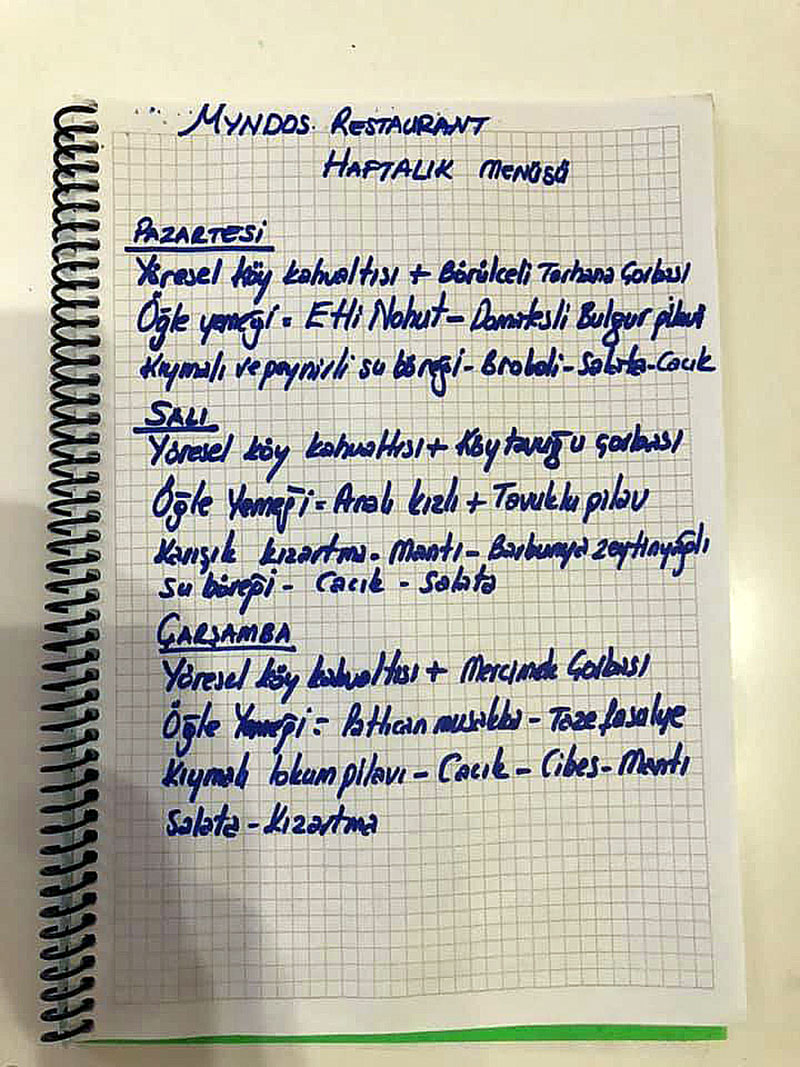 MYNDOS. RESTAURANT
HAFTALIK MENÜSÜ
PAZARTESİ
Yöresel köy kahvaltısı + Börülceli Tarhana Çorbası
Öğle yemeği = Etli Nohut - Domatesli Bulgur pilavı
Kıymalı ve peynirli su böreği - Broboli - Salata - Cacık
SALI
Yöresel köy kahvaltısı + Köy tavuğu çorbası
Öğle Yemeği = Analı kızlı + Tavuklu pilav
Karışık kızartma - Mantı - Barbunya zeytinyağlı
su böreği - Cacık - Salata
ÇARŞAMBA
Yöresel köy kahvaltısı + Mercimek Çorbası
Öğle Yemeği = Patlıcan musakka - Taze fasulye
Kıymalı lokum pilavı - Cacık - Cibes - Mantı
Salata - Kızartma